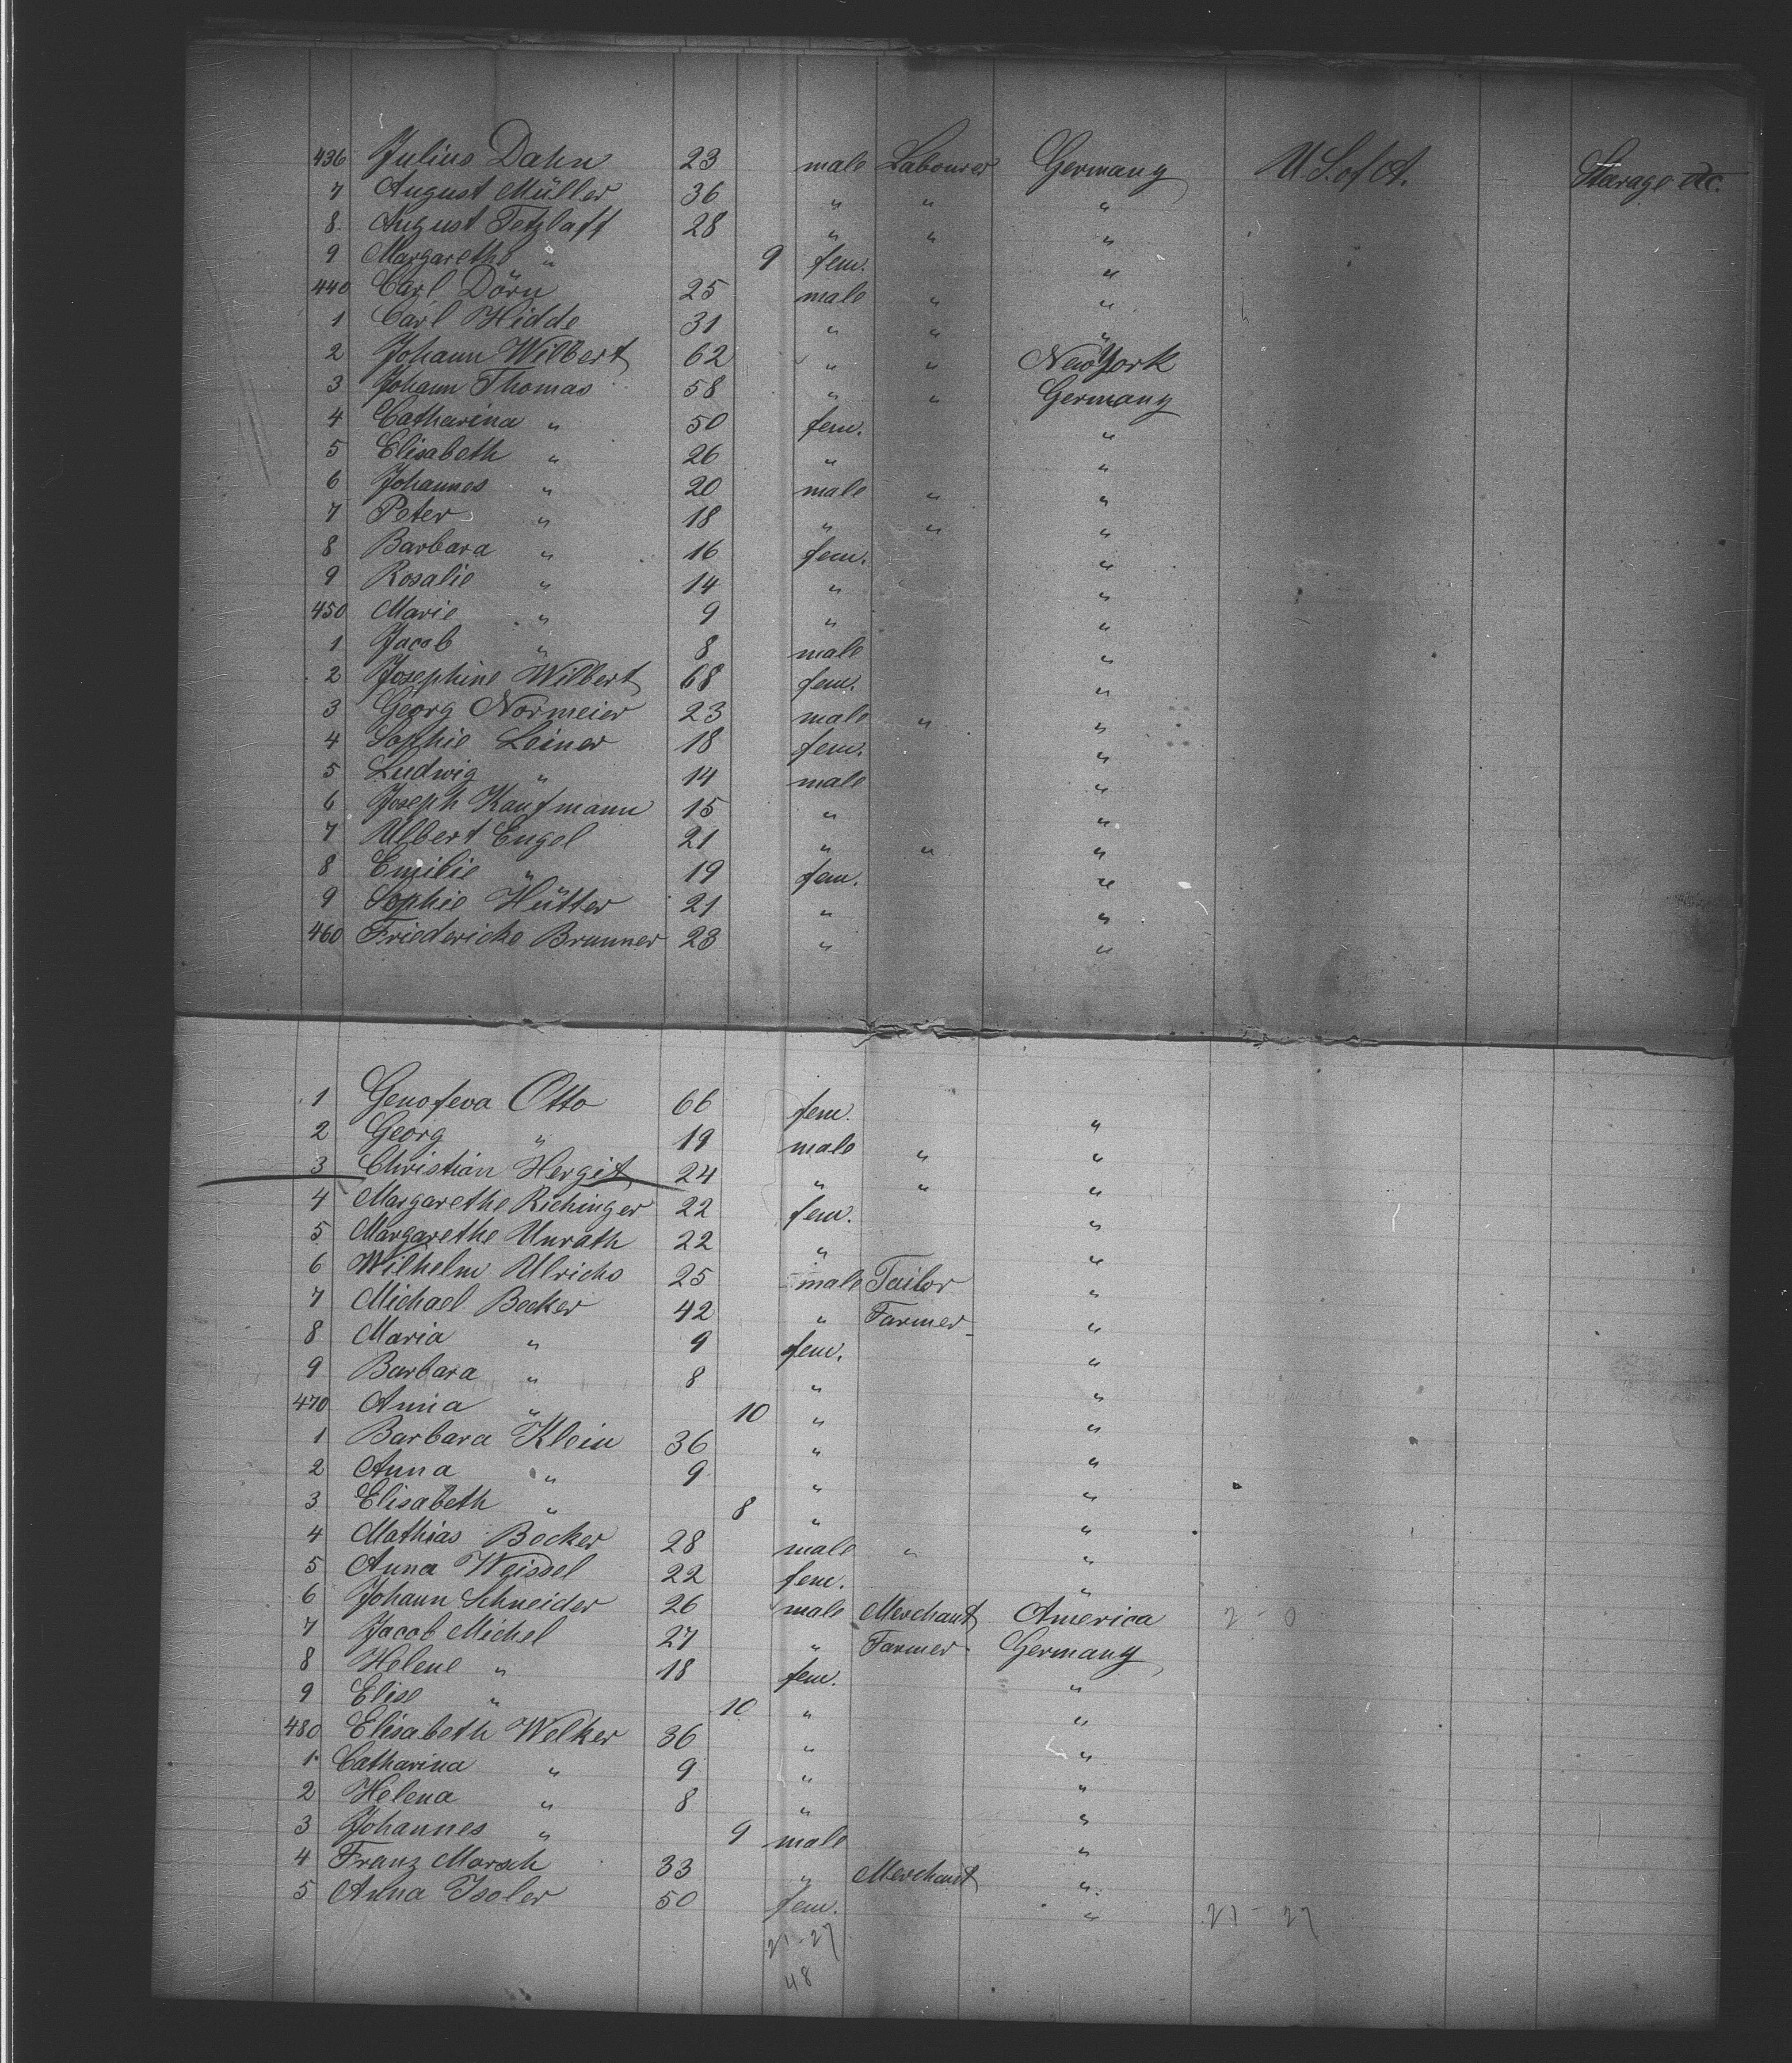 436 Julius Dahn 23 male Labourer Germany U.S. of A. Steerage etc.
7 August Müller 36 " " "
8 August Tetzlaff 28 " " "
9 Margarethe " 9 fem. "
440 Carl Dörn 25 male " "
1 Carl Hidde 31 " " "
2 Johann Wilbert 62 " " New York
3 Johann Thomas 58 " " Germany
4 Catharina " 50 fem. "
5 Elisabeth " 26 " "
6 Johannes " 20 male " "
7 Peter " 18 " " "
8 Barbara " 16 fem. "
9 Rosalie " 14 " "
450 Marie " 9 " "
1 Jacob " 8 male "
2 Josephine Wilbert 68 fem. "
3 Georg Normeier 23 male " "
4 Sophie Leiner 18 fem. "
5 Ludwig " 14 male "
6 Joseph Kaufmann 15 " "
7 Albert Engel 21 " " "
8 Emilie " 19 fem. "
9 Sophie Hütter 21 " "
460 Friederiche Brunner 23 " "
1 Genofeva Otto 66 fem. "
2 Georg " 19 male " "
3 Christian Hergit 24 " " "
4 Margarethe Richinger 22 fem. "
5 Margarethe Unrath 22 " "
6 Wilhelm Ulrichs 25 male Tailor "
7 Michael Becker 42 " Farmer "
8 Maria " 9 fem. "
9 Barbara " 8 " "
470 Anna " 10 " "
1 Barbara Klein 36 " "
2 Anna " 9 " "
3 Elisabeth " 8 " "
4 Mathias Becker 28 male " "
5 Anna Weissel 22 fem. "
6 Johann Schneider 26 male Merchant America 2 - 0
7 Jacob Michel 27 " Farmer Germany
8 Helene " 18 fem. "
9 Elise " 10 " "
480 Elisabeth Welker 36 " "
1 Catharina " 9 " "
2 Helena " 8 " "
3 Johannes " 9 male "
4 Franz Marsch 33 " Merchant "
5 Anna Isoler 50 fem. " 21 - 27
21 - 27
48